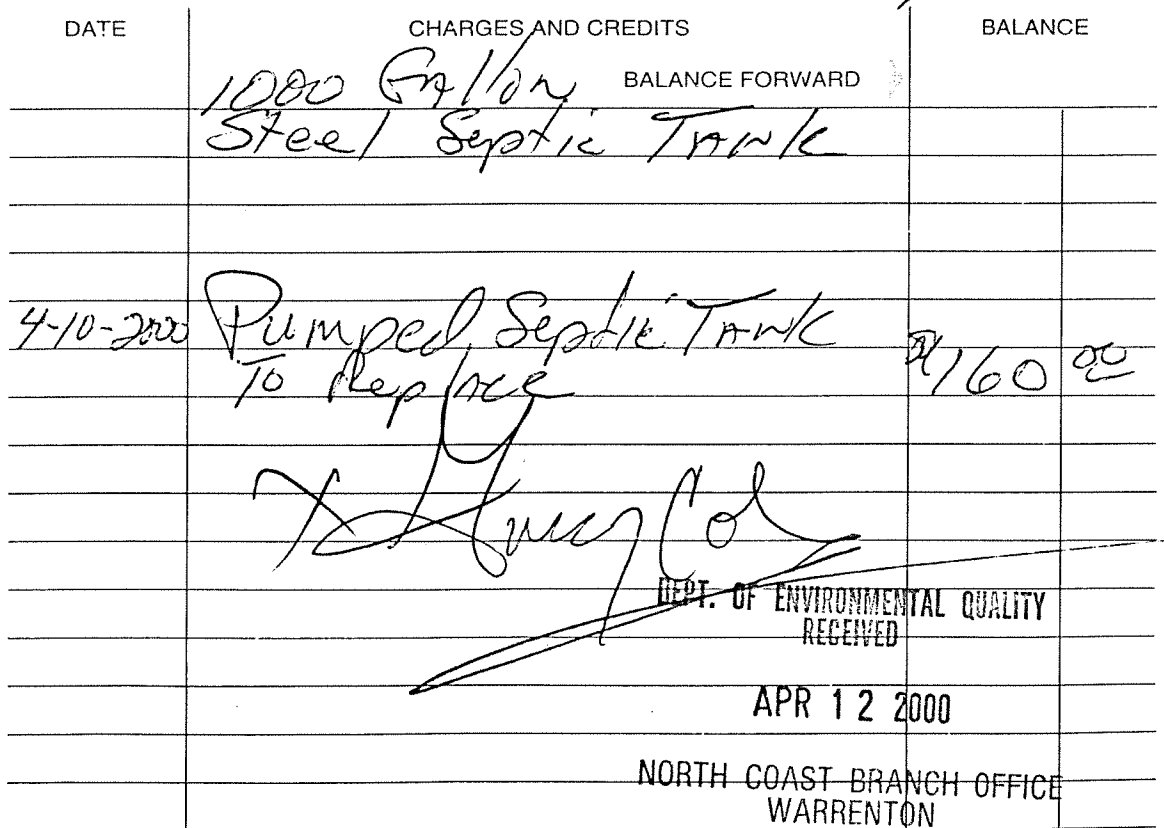 DATE CHARGES AND CREDITS BALANCE
1000 Gallon BALANCE FORWARD
Steel Septic Tank
4-10-2000 Pumped Septic Tank
To Replace $160 00
X
DEPT. OF ENVIRONMENTAL QUALITY
RECEIVED
APR 12 2000
NORTH COAST BRANCH OFFICE
WARRENTON